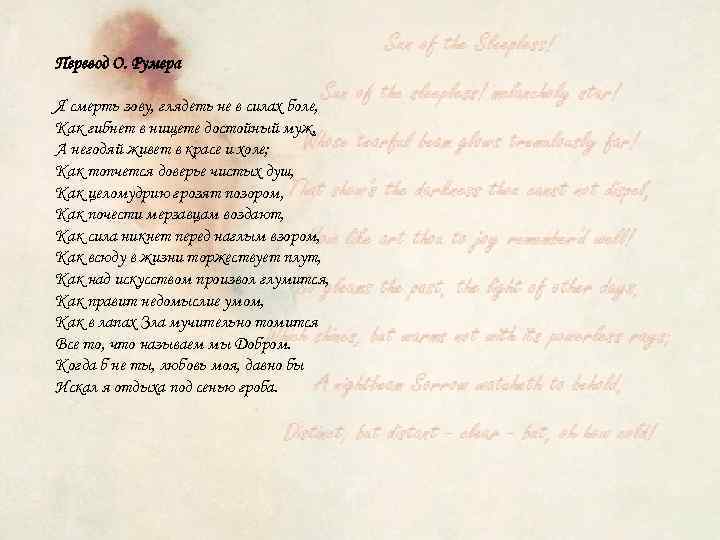 Перевод О. Румера
Я смерть зову, глядеть не в силах боле,
Как гибнет в нищете достойный муж,
А негодяй живет в красе и холе;
Как топчется доверье чистых душ,
Как целомудрию грозят позором,
Как почести мерзавцам воздают,
Как сила никнет перед наглым взором,
Как всюду в жизни торжествует плут,
Как над искусством произвол глумится,
Как правит недомыслие умом,
Как в лапах Зла мучительно томится
Все то, что называем мы Добром.
Когда б не ты, любовь моя, давно бы
Искал я отдыха под сенью гроба.
Sun of the Sleepless!
Sun of the sleepless! melancholy star!
Whose tearful beam glows tremulously far!
That show'st the darkness thou canst not dispel,
like art thou to joy remember'd well!
gleams the past, the light of other days,
shines, but warms not with its powerless rays;
A nightbeam Sorrow watcheth to behold,
Distinct, but distant - clear - but, oh how cold!